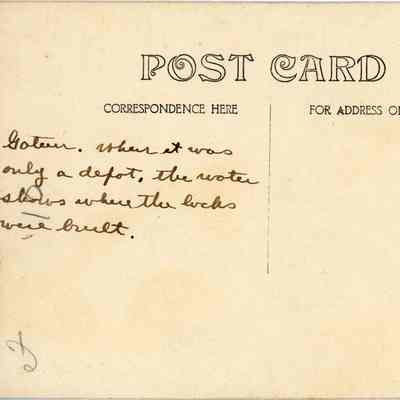 POST CARD
CORRESPONDENCE HERE
FOR ADDRESS O
Gatun. when it was
only a depot, the water
shows where the locks
were built.